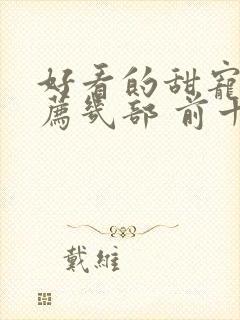 好看的甜寵
薦幾部 前十
戴維